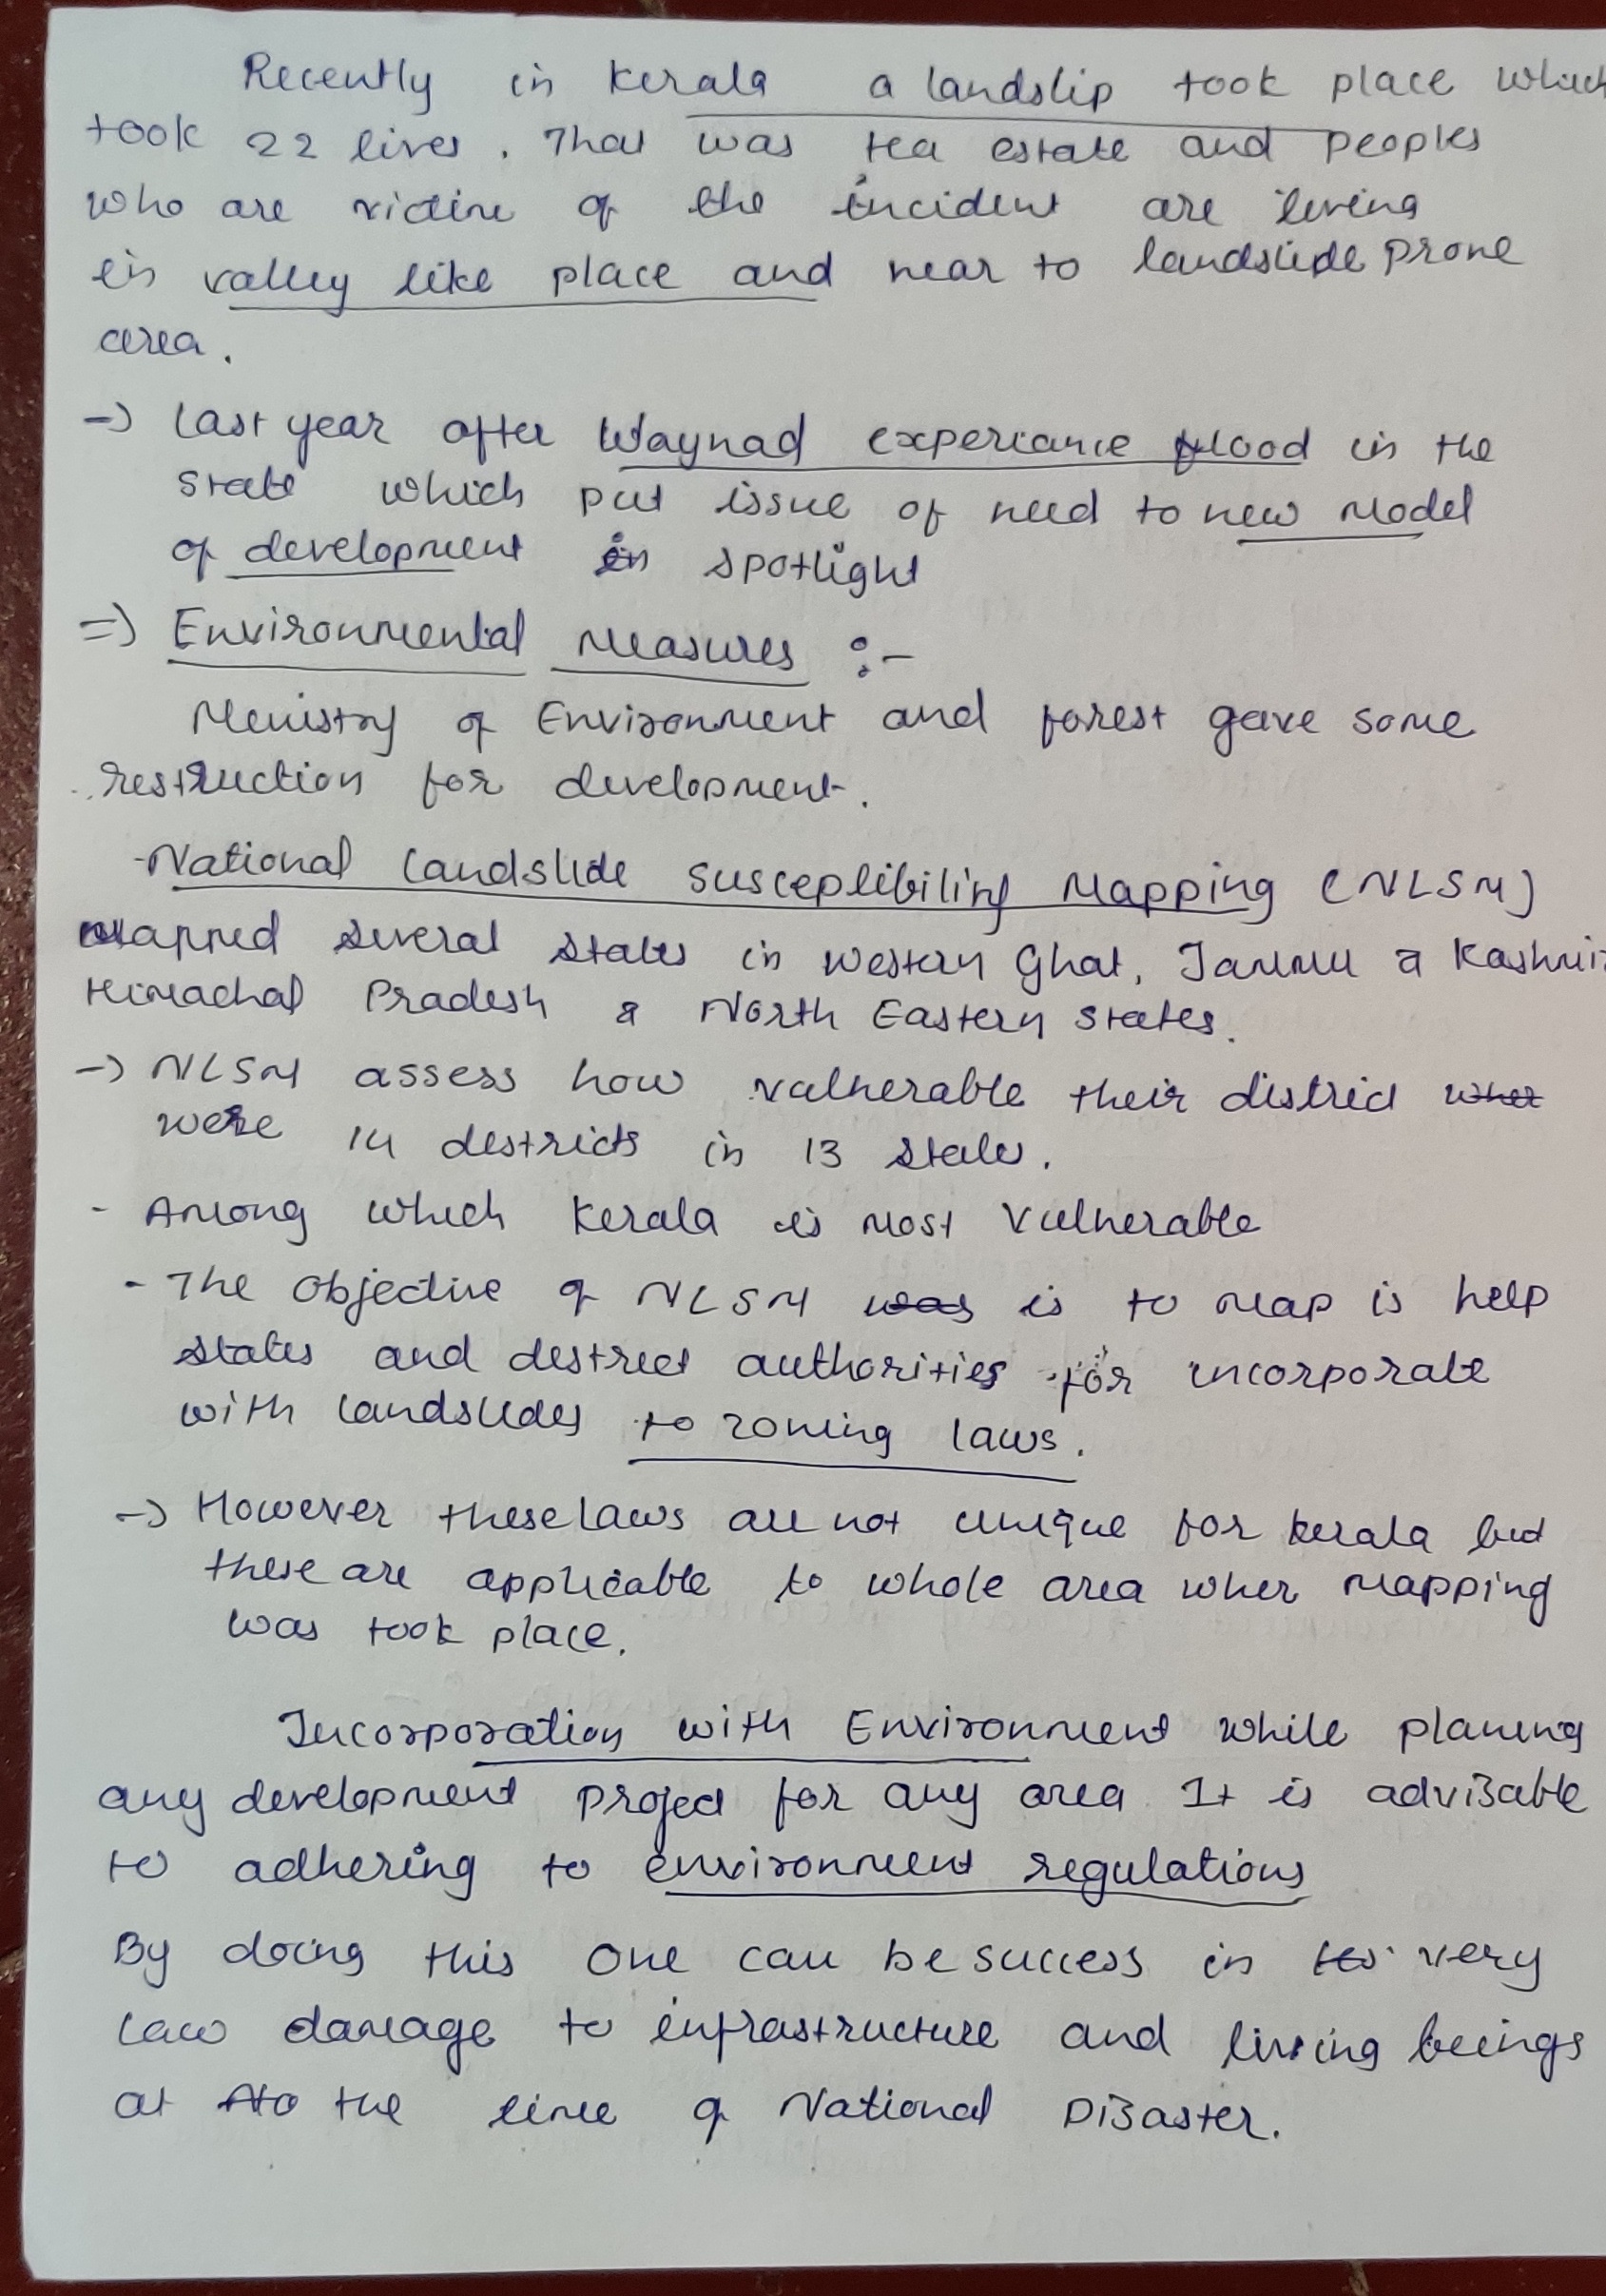 Recently in Kerala a landslip took place which
took 22 lives. That was tea estate and peoples
who are victim of the incident are living
in valley like place and near to landslide prone
area.
-> Last year after Waynad experiance flood in the
state which put issue of need to new Model
of development in spotlight
=> Environmental Measures :-
Ministry of Environment and forest gave some
restruction for development.
- National Landslide Susceplibiling Mapping (NLSM)
mapped several states in western Ghat, Jammu & Kashmir
Himachal Pradesh & North Eastern States.
-> NLSM assess how vulnerable their district
were 14 districts in 13 states.
- Among which Kerala is most Vulnerable
- The Objective of NLSM is to map is help
states and district authorities for incorporate
with landslides to zoning laws.
-> However these laws are not unique for Kerala but
these are applicable to whole area wher mapping
was took place.
Incorporation with Environment while planing
any development project for any area It is advisable
to adhering to environment regulations
By doing this one can be success in very
law damage to infrastructure and living beings
at the time of National Disaster.